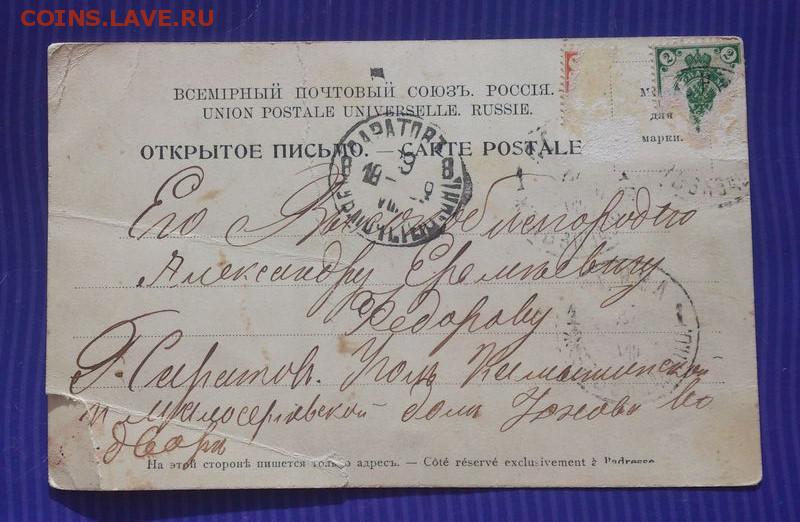 COINS.LAVE.RU
ВСЕМІРНЫЙ ПОЧТОВЫЙ СОЮЗЪ. РОССІЯ.
UNION POSTALE UNIVERSELLE. RUSSIE.
ОТКРЫТОЕ ПИСЬМО. — CARTE POSTALE
2 2
для
марки.
САРАТОВЪ
8 8
1
ВОКЗ
1
Его Высокоблагородію
Александру Еремѣевичу
Федорову
Г. Саратов. Уголъ Камышинской
и Малосергіевской домъ во
дворѣ
На этой сторонѣ пишется только адресъ. — Côté réservé exclusivement à l'adresse.